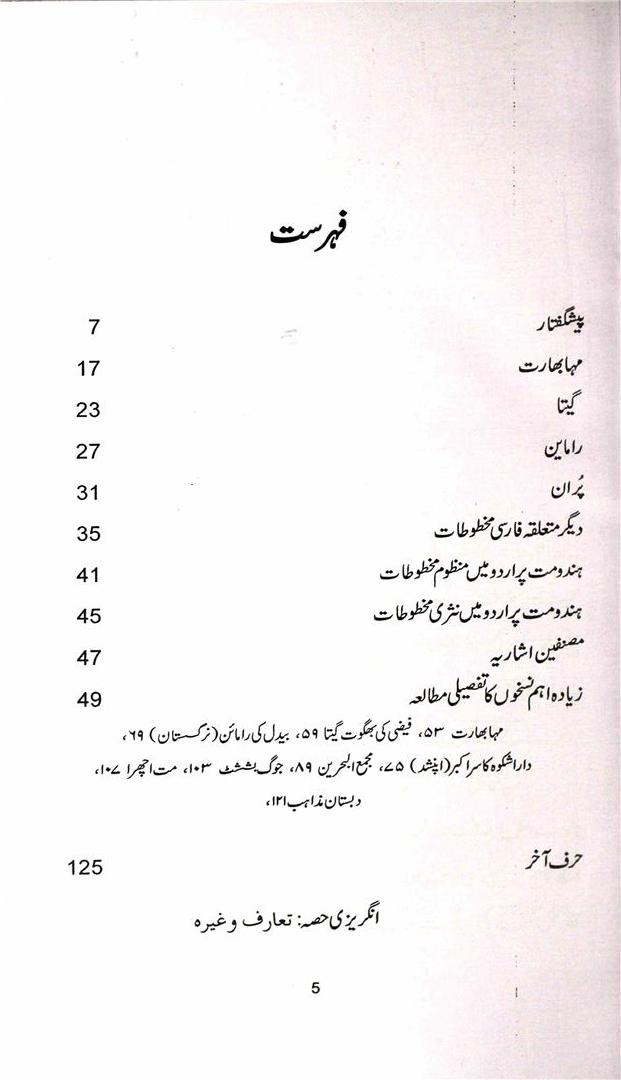 فہرست
پیشگفتار 7
مہابھارت 17
گیتا 23
راماین 27
پُران 31
دیگر متعلقہ فارسی مخطوطات 35
ہندومت پر اردو میں منظوم مخطوطات 41
ہندومت پر اردو میں نثری مخطوطات 45
مصنفین اشاریہ 47
زیادہ اہم نسخوں کا تفصیلی مطالعہ 49
مہابھارت ۵۳، فیضی کی بھگوت گیتا ۵۹، بیدل کی رامائن (نرگستان) ۶۹،
داراشکوہ کا سراکبر (اپنشد) ۷۵، مجمع البحرین ۸۹، جوگ بششٹ ۱۰۳، مت اچھرا ۱۰۷،
دبستان مذاہب ۱۲۱،
حرف آخر 125
انگریزی حصہ: تعارف وغیرہ
5